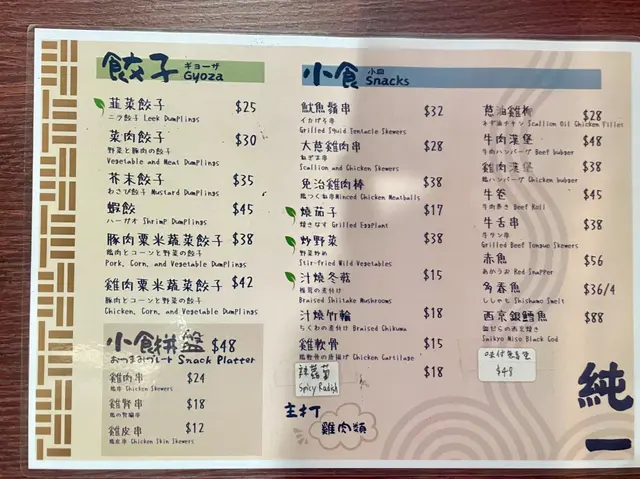 餃子 ギョーザ Gyoza
韮菜餃子 $25
ニラ餃子 Leek Dumplings
菜肉餃子 $30
野菜と豚肉の餃子
Vegetable and Meat Dumplings
芥末餃子 $35
わさび餃子 Mustard Dumplings
蝦餃 $45
ハーガオ Shrimp Dumplings
豚肉粟米蔬菜餃子 $38
豚肉とコーンと野菜の餃子
Pork, Corn, and Vegetable Dumplings
雞肉粟米蔬菜餃子 $42
Chicken, Corn, and Vegetable Dumplings
小食拼盤 $48
おつまみプレート Snack Platter
雞肉串 $24
Chicken Skewers
雞腎串 $18
雞皮串 $12
鶏皮串 Chicken Skin Skewers
小食 小皿 Snacks
魷魚鬚串 $32
イカげそ串
Grilled Squid Tentacle Skewers
大葱雞肉串 $28
ねぎま串
Scallion and Chicken Skewers
免治雞肉棒 $38
鶏つくね串 Minced Chicken Meatballs
燒茄子 $17
焼きなす Grilled Eggplant
炒野菜 $38
野菜炒め
Stir-fried Wild Vegetables
汁燒冬菇 $15
椎茸の煮付け
Braised Shiitake Mushrooms
汁燒竹輪 $18
ちくわの煮付け Braised Chikuwa
雞軟骨 $15
鶏軟骨の唐揚げ Chicken Cartilage
辣蘿蔔 $18
Spicy Radish
主打
雞肉類
葱油雞柳 $28
ねぎ油チキン Scallion Oil Chicken Fillet
牛肉漢堡 $48
牛肉ハンバーグ Beef bubger
雞肉漢堡 $38
鶏肉ハンバーグ Chicken bubger
牛卷 $45
牛肉巻き Beef Roll
牛舌串 $38
牛タン串
Grilled Beef Tongue Skewers
赤魚 $56
あかうお Red Snapper
多春魚 $36/4
ししゃも Shishamo Smelt
西京銀鱈魚 $88
銀だらの西京焼き
Saikyo Miso Black Cod
$48
純一